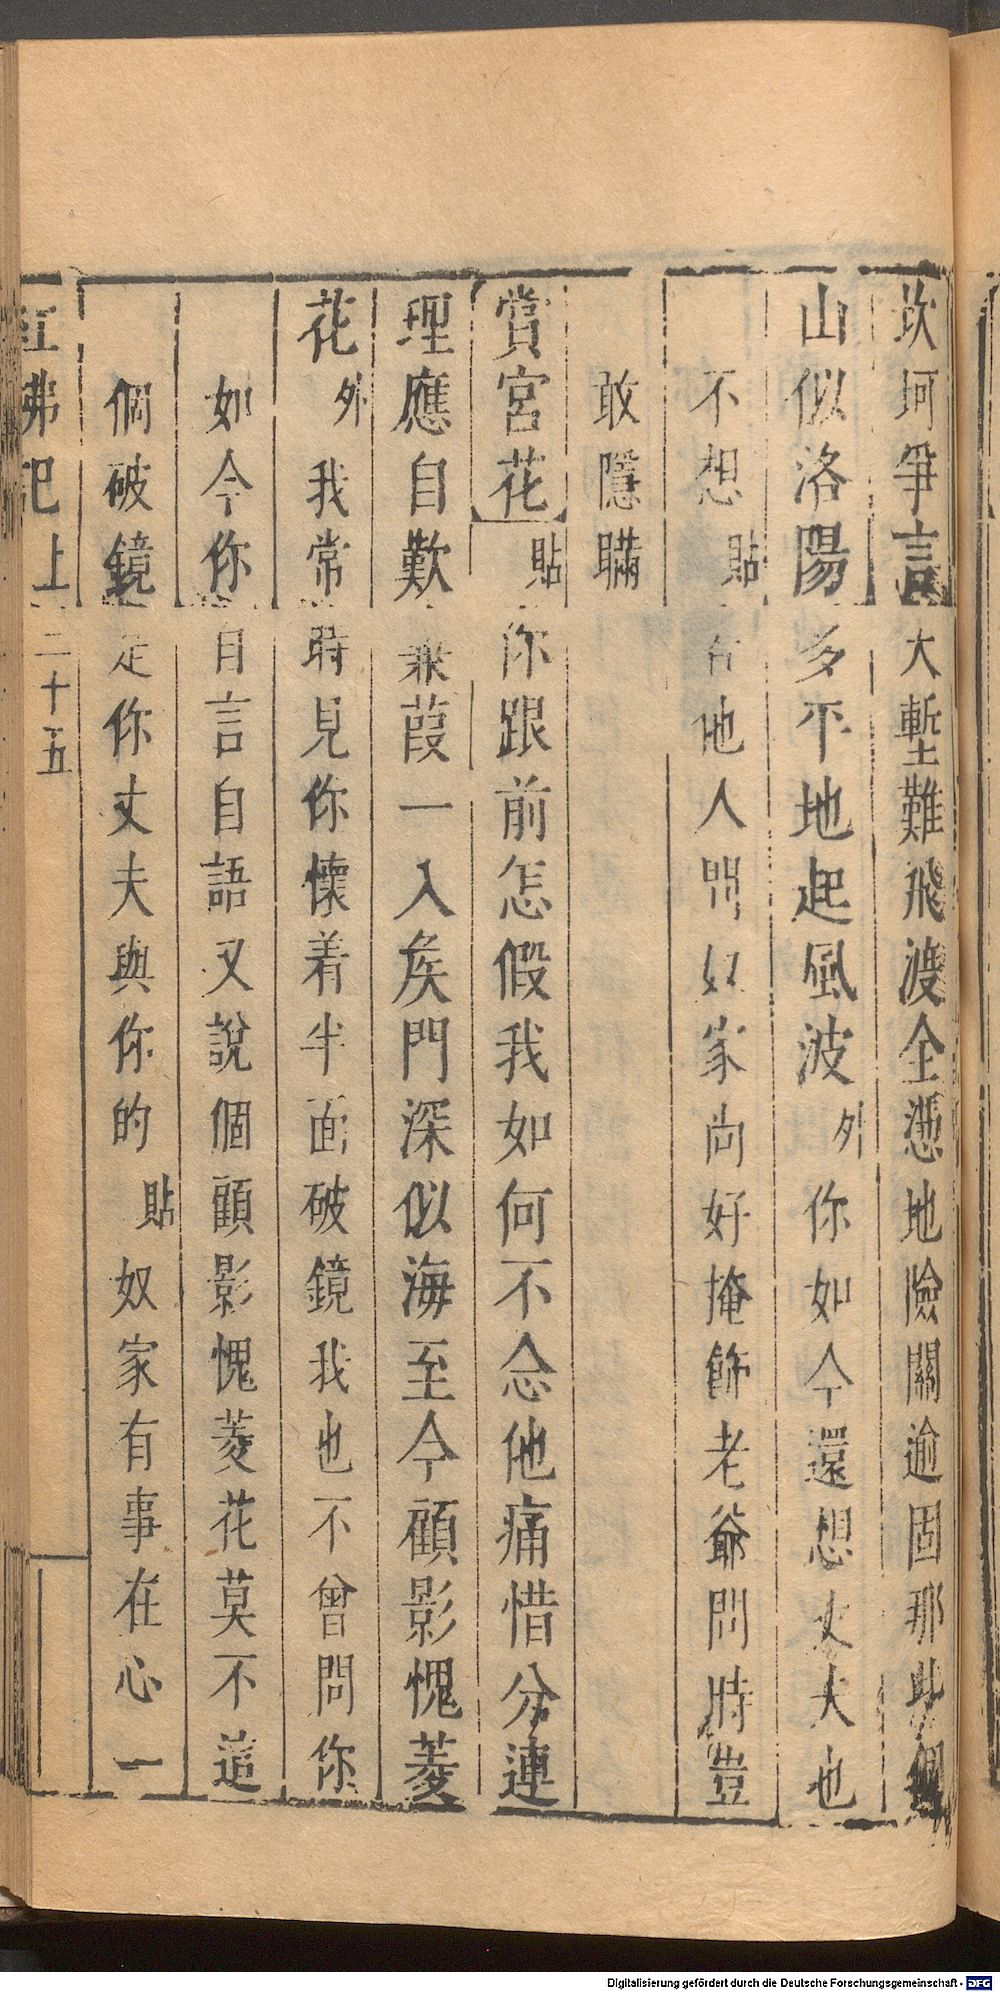 坎坷爭言大壍難飛渡全憑地險關逾固那些個
山似洛陽多平地起風波外你如今還想丈夫也
不想貼若他人問奴家尚好掩飾老爺問時豈
敢隱瞞
賞宮花貼你跟前怎假我如何不念他痛惜分連
理應自歎蒹葭一入矦門深似海至今顧影愧菱
花外我常時見你懷着半面破鏡我也不曾問你
如今你自言自語又說個顧影愧菱花莫不這
個破鏡是你丈夫與你的貼奴家有事在心一
紅拂記上 二十五
Digitalisierung gefördert durch die Deutsche Forschungsgemeinschaft - DFG